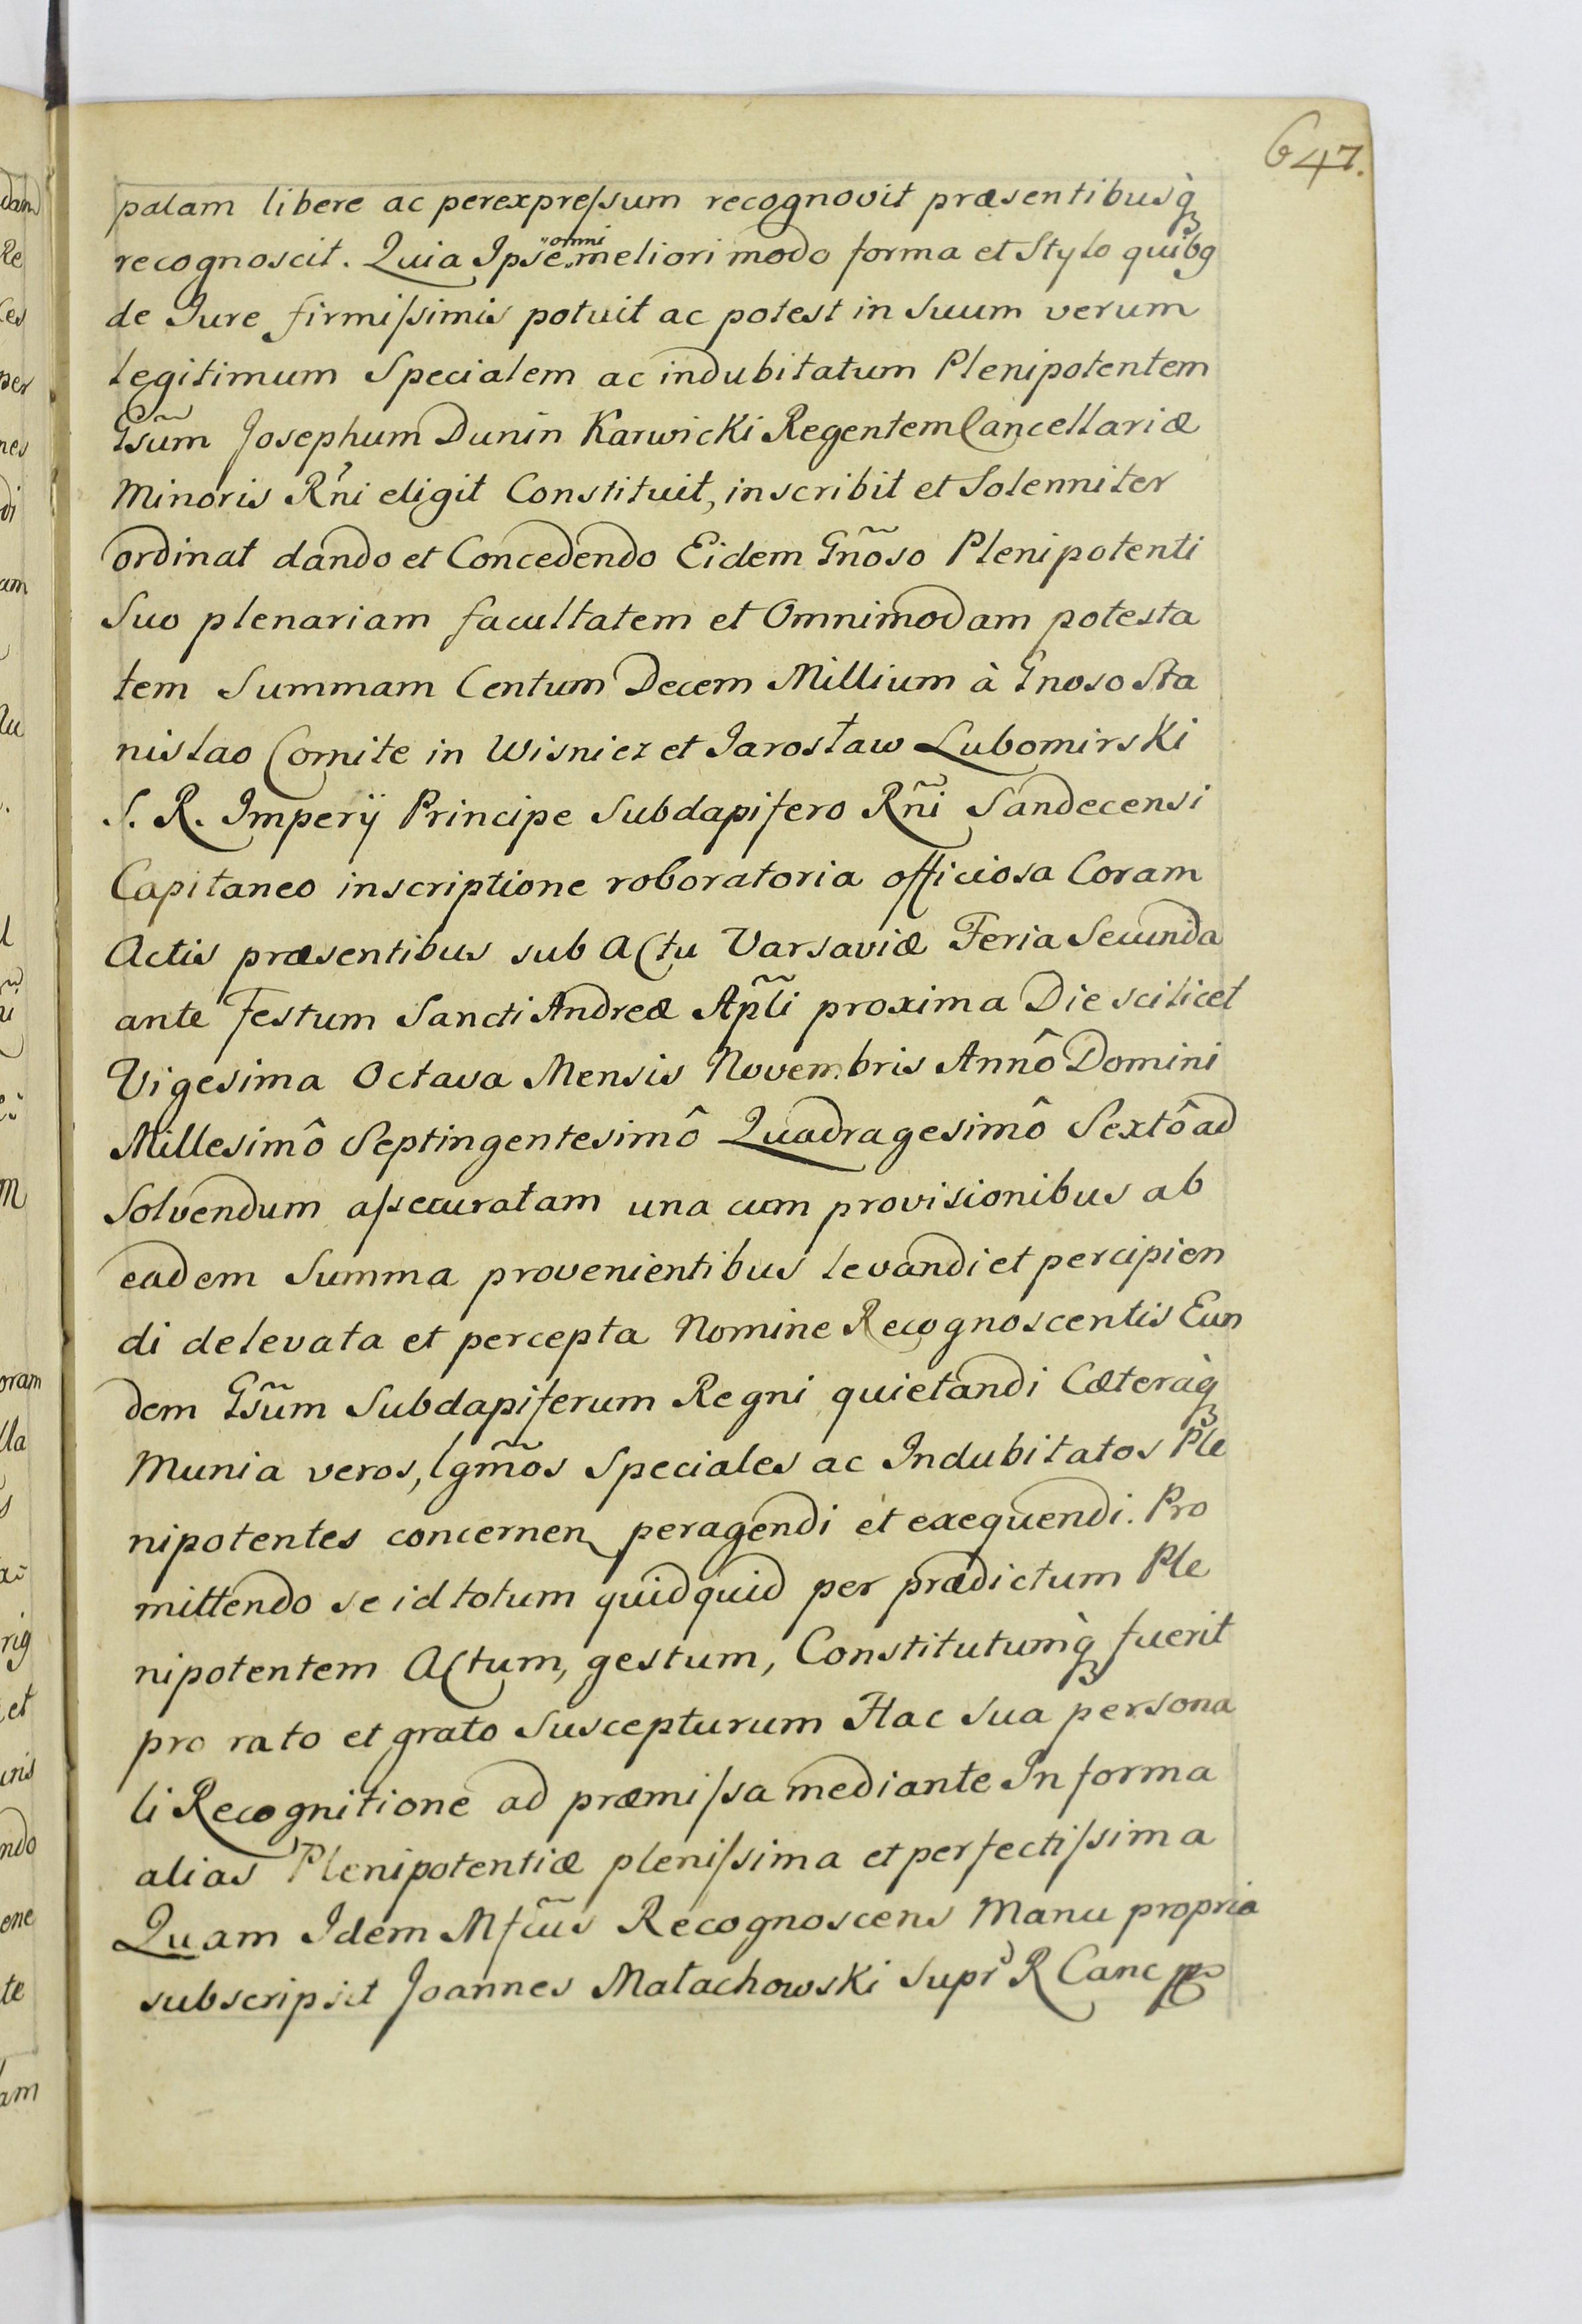 647.
palam libere ac perexpressum recognovit præsentibusq̀
recognoscit. Quia Ipse omni meliori modo forma et Stylo quibg
de Jure firmissimis potuit ac potest in Suum verum
legitimum Specialem ac indubitatum Plenipotentem
Gsũm Josephum Dunin Karwicki Regentem Cancellariæ
Minoris Rñi eligit Constituit, inscribit et Solenniter
ordinat dando et Concedendo Eidem Gñoso Plenipotenti
Suo plenariam facultatem et Omnimodam potesta
tem Summam Centum Decem Millium à Gnoso Sta
nislao Comite in Wisnicz et Jarosław Lubomirski
S. R. Imperÿ Principe Subdapifero Rñi Sandecensi
Capitaneo inscriptione roboratoria officiosa Coram
Actis præsentibus sub Actu Varsaviæ Feria Secunda
ante Festum Sancti Andreæ Apl̃i proxima Die scilicet
Vigesima Octava Mensis Novembris Annô Domini
Millesimô Septingentesimô Quadragesimô Sextô ad
Solvendum assecuratam una cum provisionibus ab
eadem Summa provenientibus levandi et percipien
di delevata et percepta Nomine Recognoscentis Eun
dem Gsũm Subdapiferum Regni quietandi Cæteraq̀
Munia veros, lgm̃os Speciales ac Indubitatos Ple
nipotentes concernen peragendi et exequendi. Pro
mittendo se id totum quidquid per prædictum Ple
nipotentem Actum, gestum, Constitutumq̀ fuerit
pro rato et grato Suscepturum Hac Sua persona
li Recognitione ad præmissa mediante In forma
alias Plenipotentiæ plenissima et perfectissima
Quam Idem Mfcũs Recognoscens Manu propria
subscripsit Joannes Małachowski Supr R Canc mp